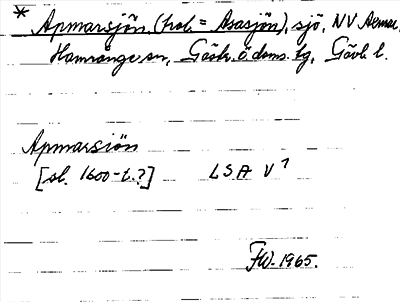 * Apmarsjön (trol. = Asasjön), sjö, NV Axmar,
Hamrånge sn, Gästr. ö. doms. tg, Gävl. l.
Apmarsiön
[sl. 1600-t.?] LSA V 1
FW. 1965.